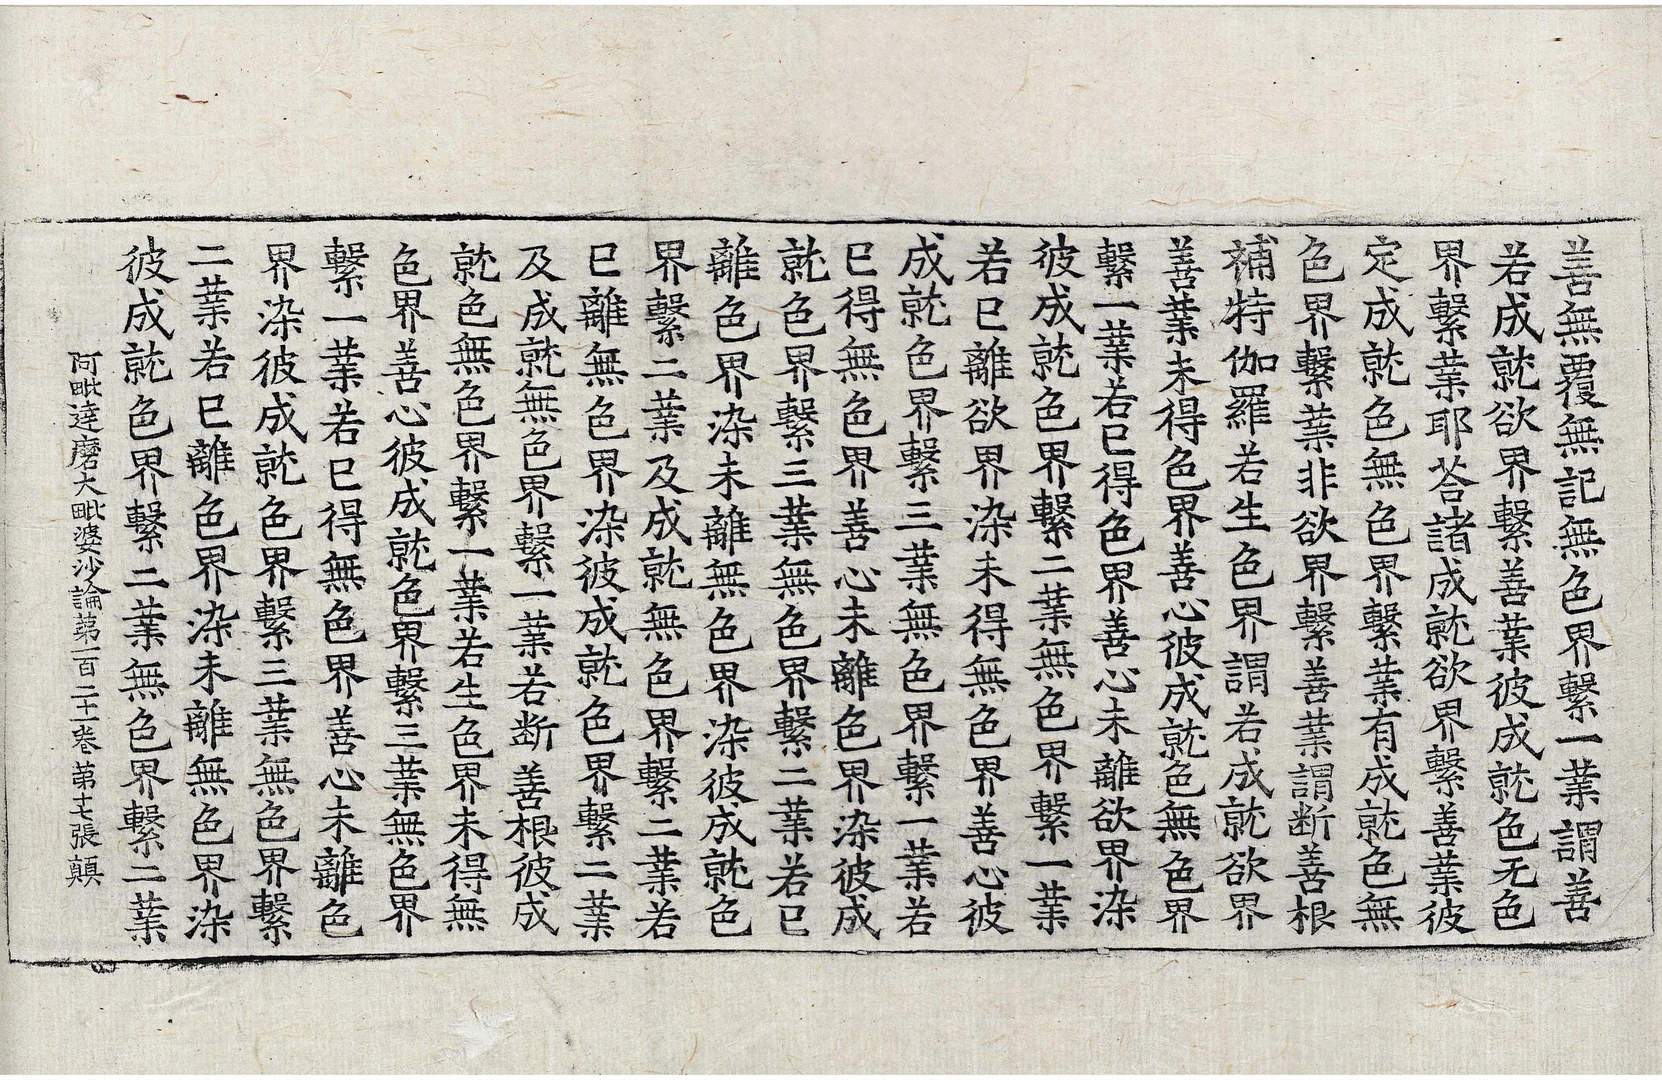 善無覆無記無色界繫一業謂善
若成就欲界繫善業彼成就色无色
界繫業耶荅諸成就欲界繫善業彼
定成就色無色界繫業有成就色無
色界繫業非欲界繫善業謂断善根
補特伽羅若生色界謂若成就欲界
善業未得色界善心彼成就色無色界
繫一業若已得色界善心未離欲界染
彼成就色界繫二業無色界繫一業
若已離欲界染未得無色界善心彼
成就色界繫三業無色界繫一業若
已得無色界善心未離色界染彼成
就色界繫三業無色界繫二業若已
離色界染未離無色界染彼成就色
界繫二業及成就無色界繫二業若
已離無色界染彼成就色界繫二業
及成就無色界繫一業若断善根彼成
就色無色界繫一業若生色界未得無
色界善心彼成就色界繫三業無色界
繫一業若已得無色界善心未離色
界染彼成就色界繫三業無色界繫
二業若已離色界染未離無色界染
彼成就色界繫二業無色界繫二業
阿毗達磨大毗婆沙論第一百二十一卷 第十七張 顛